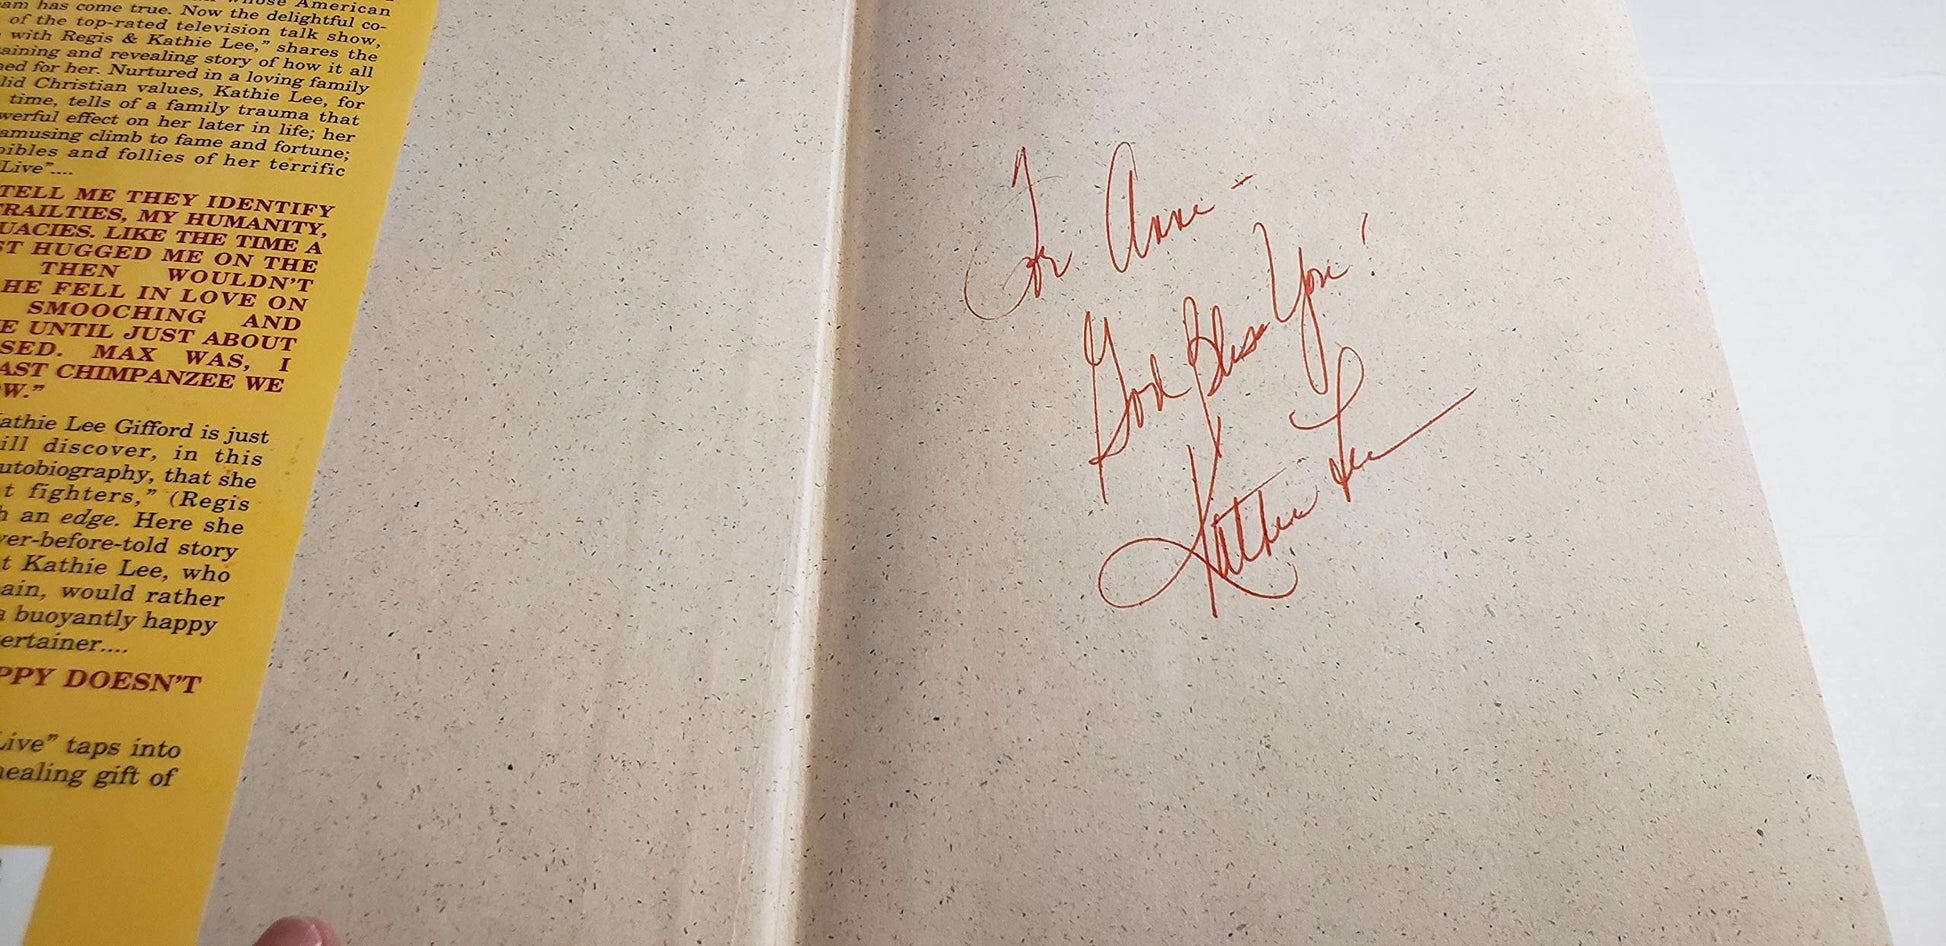 whose American
am has come true. Now the delightful co-
of the top-rated television talk show,
with Regis & Kathie Lee,” shares the
aining and revealing story of how it all
ned for her. Nurtured in a loving family
lid Christian values, Kathie Lee, for
time, tells of a family trauma that
werful effect on her later in life; her
amusing climb to fame and fortune;
oibles and follies of her terrific
Live”....
TELL ME THEY IDENTIFY
FRAILTIES, MY HUMANITY,
UACIES. LIKE THE TIME A
ST HUGGED ME ON THE
THEN WOULDN’T
HE FELL IN LOVE ON
SMOOCHING AND
E UNTIL JUST ABOUT
SED. MAX WAS, I
AST CHIMPANZEE WE
OW.”
Kathie Lee Gifford is just
ill discover, in this
utobiography, that she
t fighters,” (Regis
h an edge. Here she
ver-before-told story
t Kathie Lee, who
ain, would rather
a buoyantly happy
ertainer....
PPY DOESN’T
Live” taps into
healing gift of
For Anne -
God Bless You!
Kathie Lee